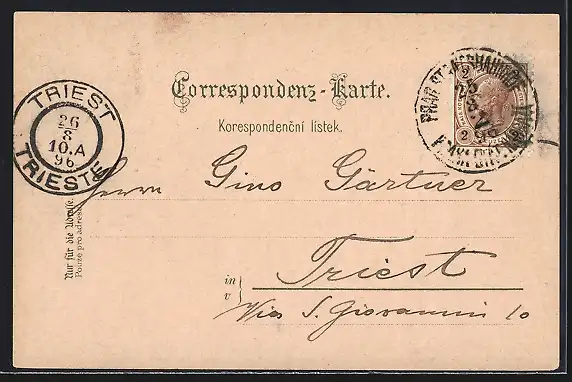 Correspondenz-Karte.
Korespondenční lístek.
TRIEST
26
8
10.A
96
TRIESTE
2
2
Herrn Gino Gärtner
Triest
in
v
Via S. Giovanni 10
Nur für die Adresse.
Pouze pro adresu.